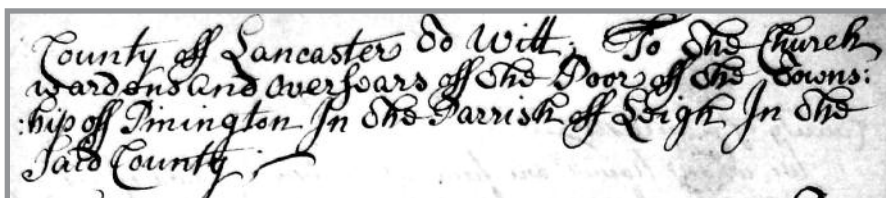 County off Lancaster to Witt; To the Church
wardens and oversears off the Poor off the Towns:
:hip off Pinington In the Parrish off Leigh In the
Said County